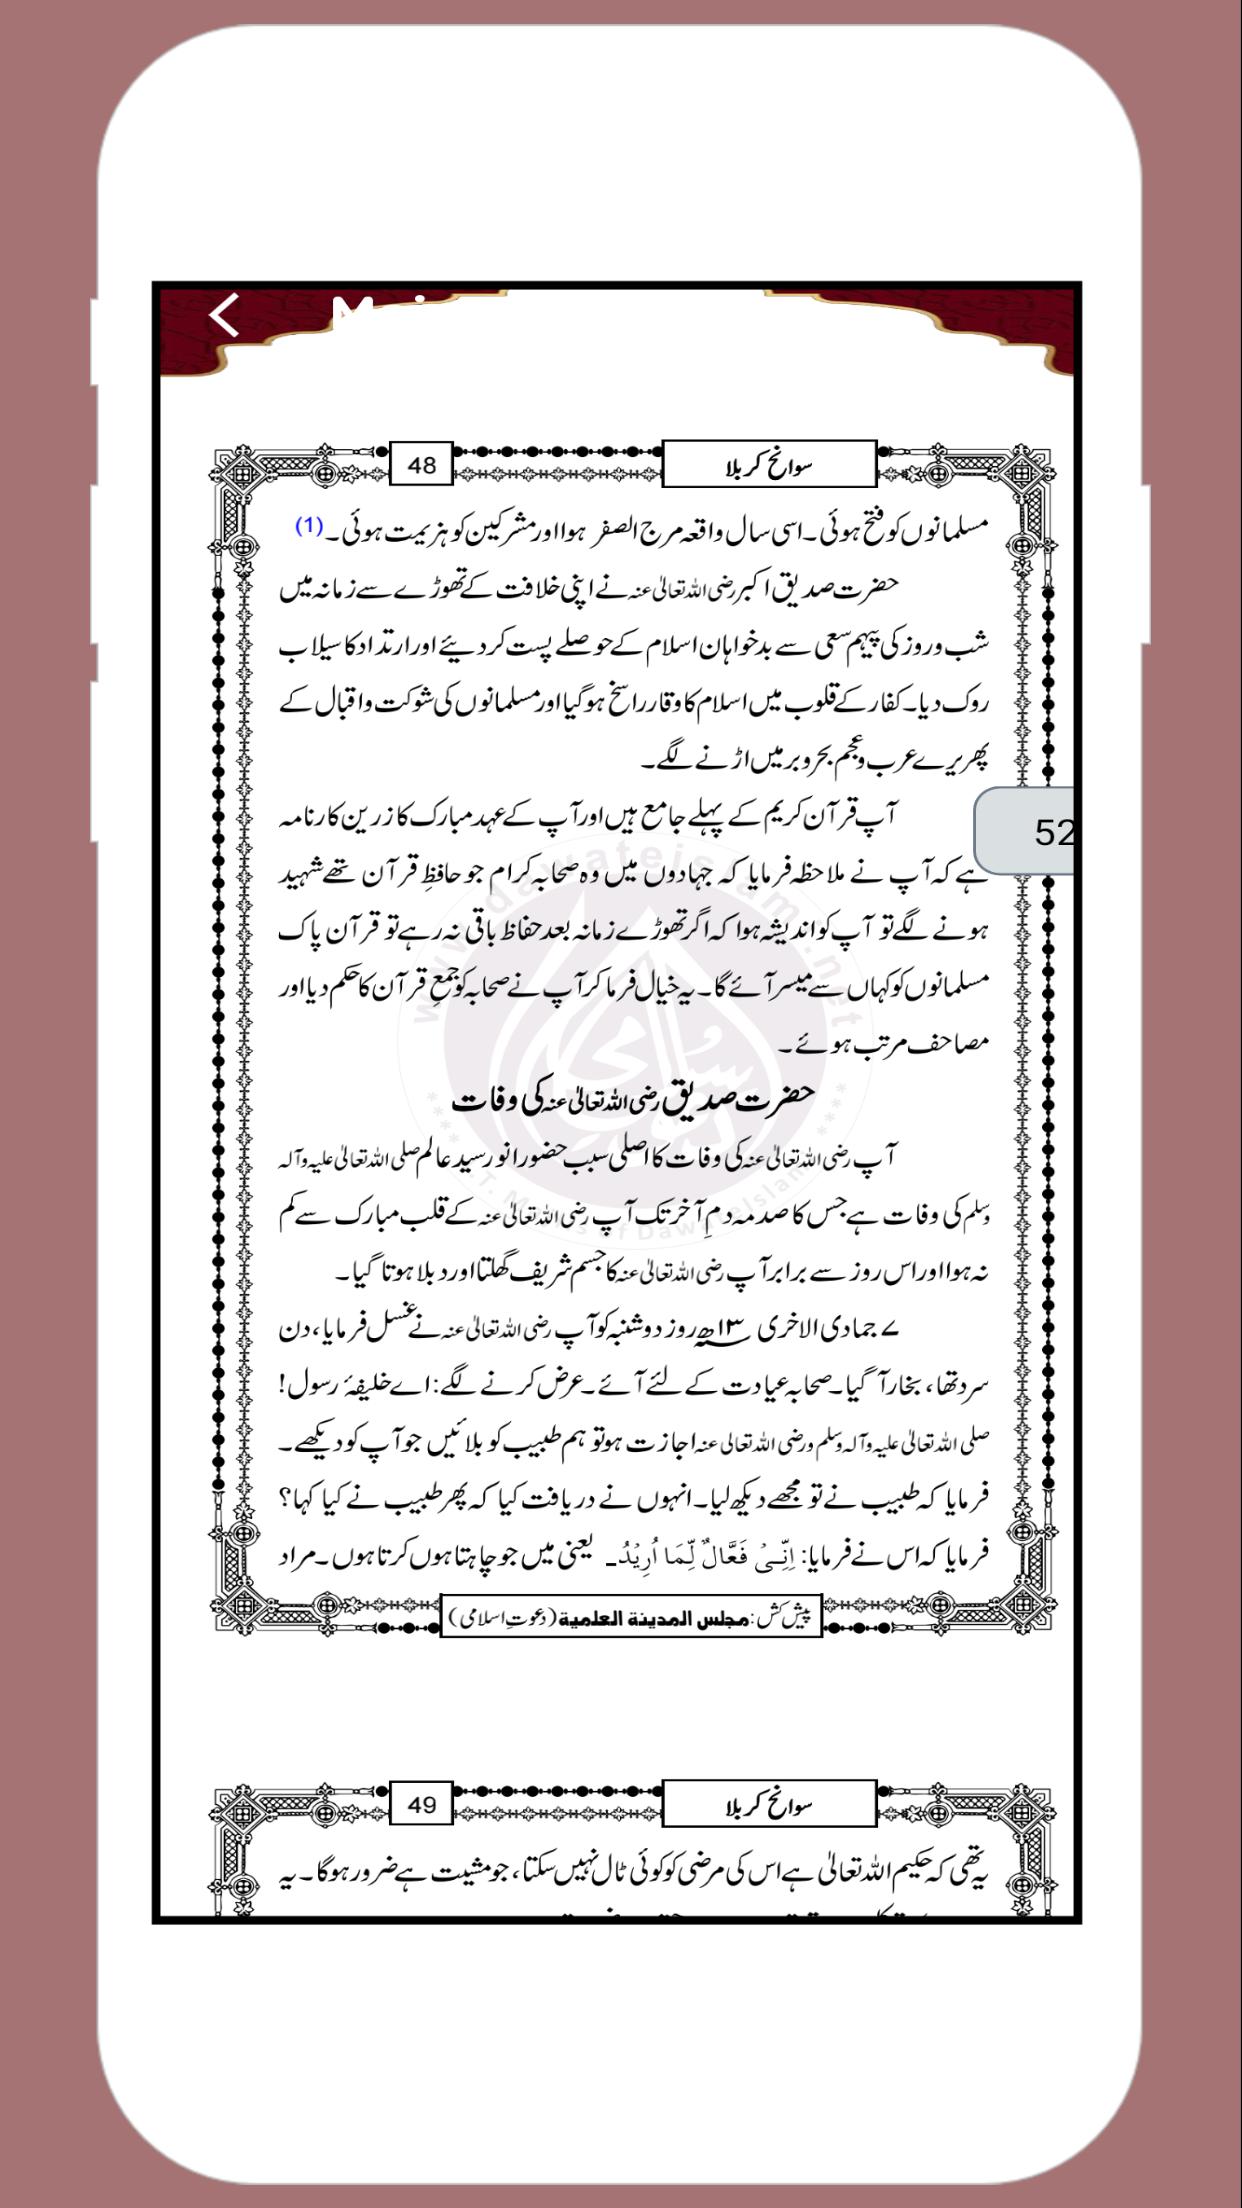 سوانح کربلا
48
مسلمانوں کو فتح ہوئی۔ اسی سال واقعہ مرج الصفر ہوا اور مشرکین کو ہزیمت ہوئی۔ (1)
حضرت صدیق اکبر رضی اللہ تعالیٰ عنہ نے اپنی خلافت کے تھوڑے سے زمانہ میں
شب و روز کی پیہم سعی سے بدخواہان اسلام کے حوصلے پست کر دیئے اور ارتداد کا سیلاب
روک دیا۔ کفار کے قلوب میں اسلام کا وقار راسخ ہو گیا اور مسلمانوں کی شوکت و اقبال کے
پھریرے عرب و عجم بحر و بر میں اڑنے لگے۔
آپ قرآن کریم کے پہلے جامع ہیں اور آپ کے عہد مبارک کا زرین کارنامہ
52
ہے کہ آپ نے ملاحظہ فرمایا کہ جہادوں میں وہ صحابہ کرام جو حافظِ قرآن تھے شہید
ہونے لگے تو آپ کو اندیشہ ہوا کہ اگر تھوڑے زمانہ بعد حفاظ باقی نہ رہے تو قرآن پاک
مسلمانوں کو کہاں سے میسر آئے گا۔ یہ خیال فرما کر آپ نے صحابہ کو جمعِ قرآن کا حکم دیا اور
مصاحف مرتب ہوئے۔
حضرت صدیق رضی اللہ تعالیٰ عنہ کی وفات
آپ رضی اللہ تعالیٰ عنہ کی وفات کا اصلی سبب حضور انور سید عالم صلی اللہ تعالیٰ علیہ وآلہ
وسلم کی وفات ہے جس کا صدمہ دمِ آخر تک آپ رضی اللہ تعالیٰ عنہ کے قلب مبارک سے کم
نہ ہوا اور اس روز سے برابر آپ رضی اللہ تعالیٰ عنہ کا جسم شریف گھلتا اور دبلا ہوتا گیا۔
۷ جمادی الاخری ۱۳ھ روز دوشنبہ کو آپ رضی اللہ تعالیٰ عنہ نے غسل فرمایا، دن
سرد تھا، بخار آ گیا۔ صحابہ عیادت کے لئے آئے۔ عرض کرنے لگے: اے خلیفۂ رسول!
صلی اللہ تعالیٰ علیہ وآلہ وسلم ورضی اللہ تعالی عنہ اجازت ہو تو ہم طبیب کو بلائیں جو آپ کو دیکھے۔
فرمایا کہ طبیب نے تو مجھے دیکھ لیا۔ انہوں نے دریافت کیا کہ پھر طبیب نے کیا کہا؟
فرمایا کہ اس نے فرمایا: اِنِّیْ فَعَّالٌ لِّمَا اُرِیْدُ۔ یعنی میں جو چاہتا ہوں کرتا ہوں۔ مراد
پیش کش: مجلس المدینۃ العلمیۃ (دعوتِ اسلامی)
سوانح کربلا
49
یہ تھی کہ حکیم اللہ تعالیٰ ہے اس کی مرضی کو کوئی ٹال نہیں سکتا، جو مشیت ہے ضرور ہوگا۔ یہ